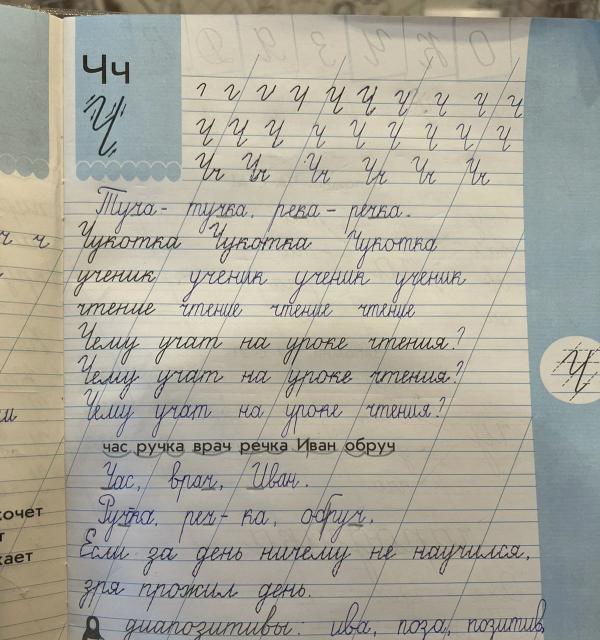 Чч
Ч
Ч Ч Ч Ч Ч Ч Ч
Ч Ч Ч Ч Ч Ч Ч Ч Ч
Чч Чч Чч Чч Чч Чч
Туча - тучка, река - речка.
Чукотка Чукотка Чукотка
ученик ученик ученик ученик
чтение чтение чтение чтение
Чему учат на уроке чтения?
Чему учат на уроке чтения?
Чему учат на уроке чтения?
час ручка врач речка Иван обруч
Час, врач, Иван.
Ручка, реч-ка, обруч.
Если за день ничему не научился,
зря прожил день.
диапозитивы: ива, поза, позитив,
ч ч
Ч
хочет